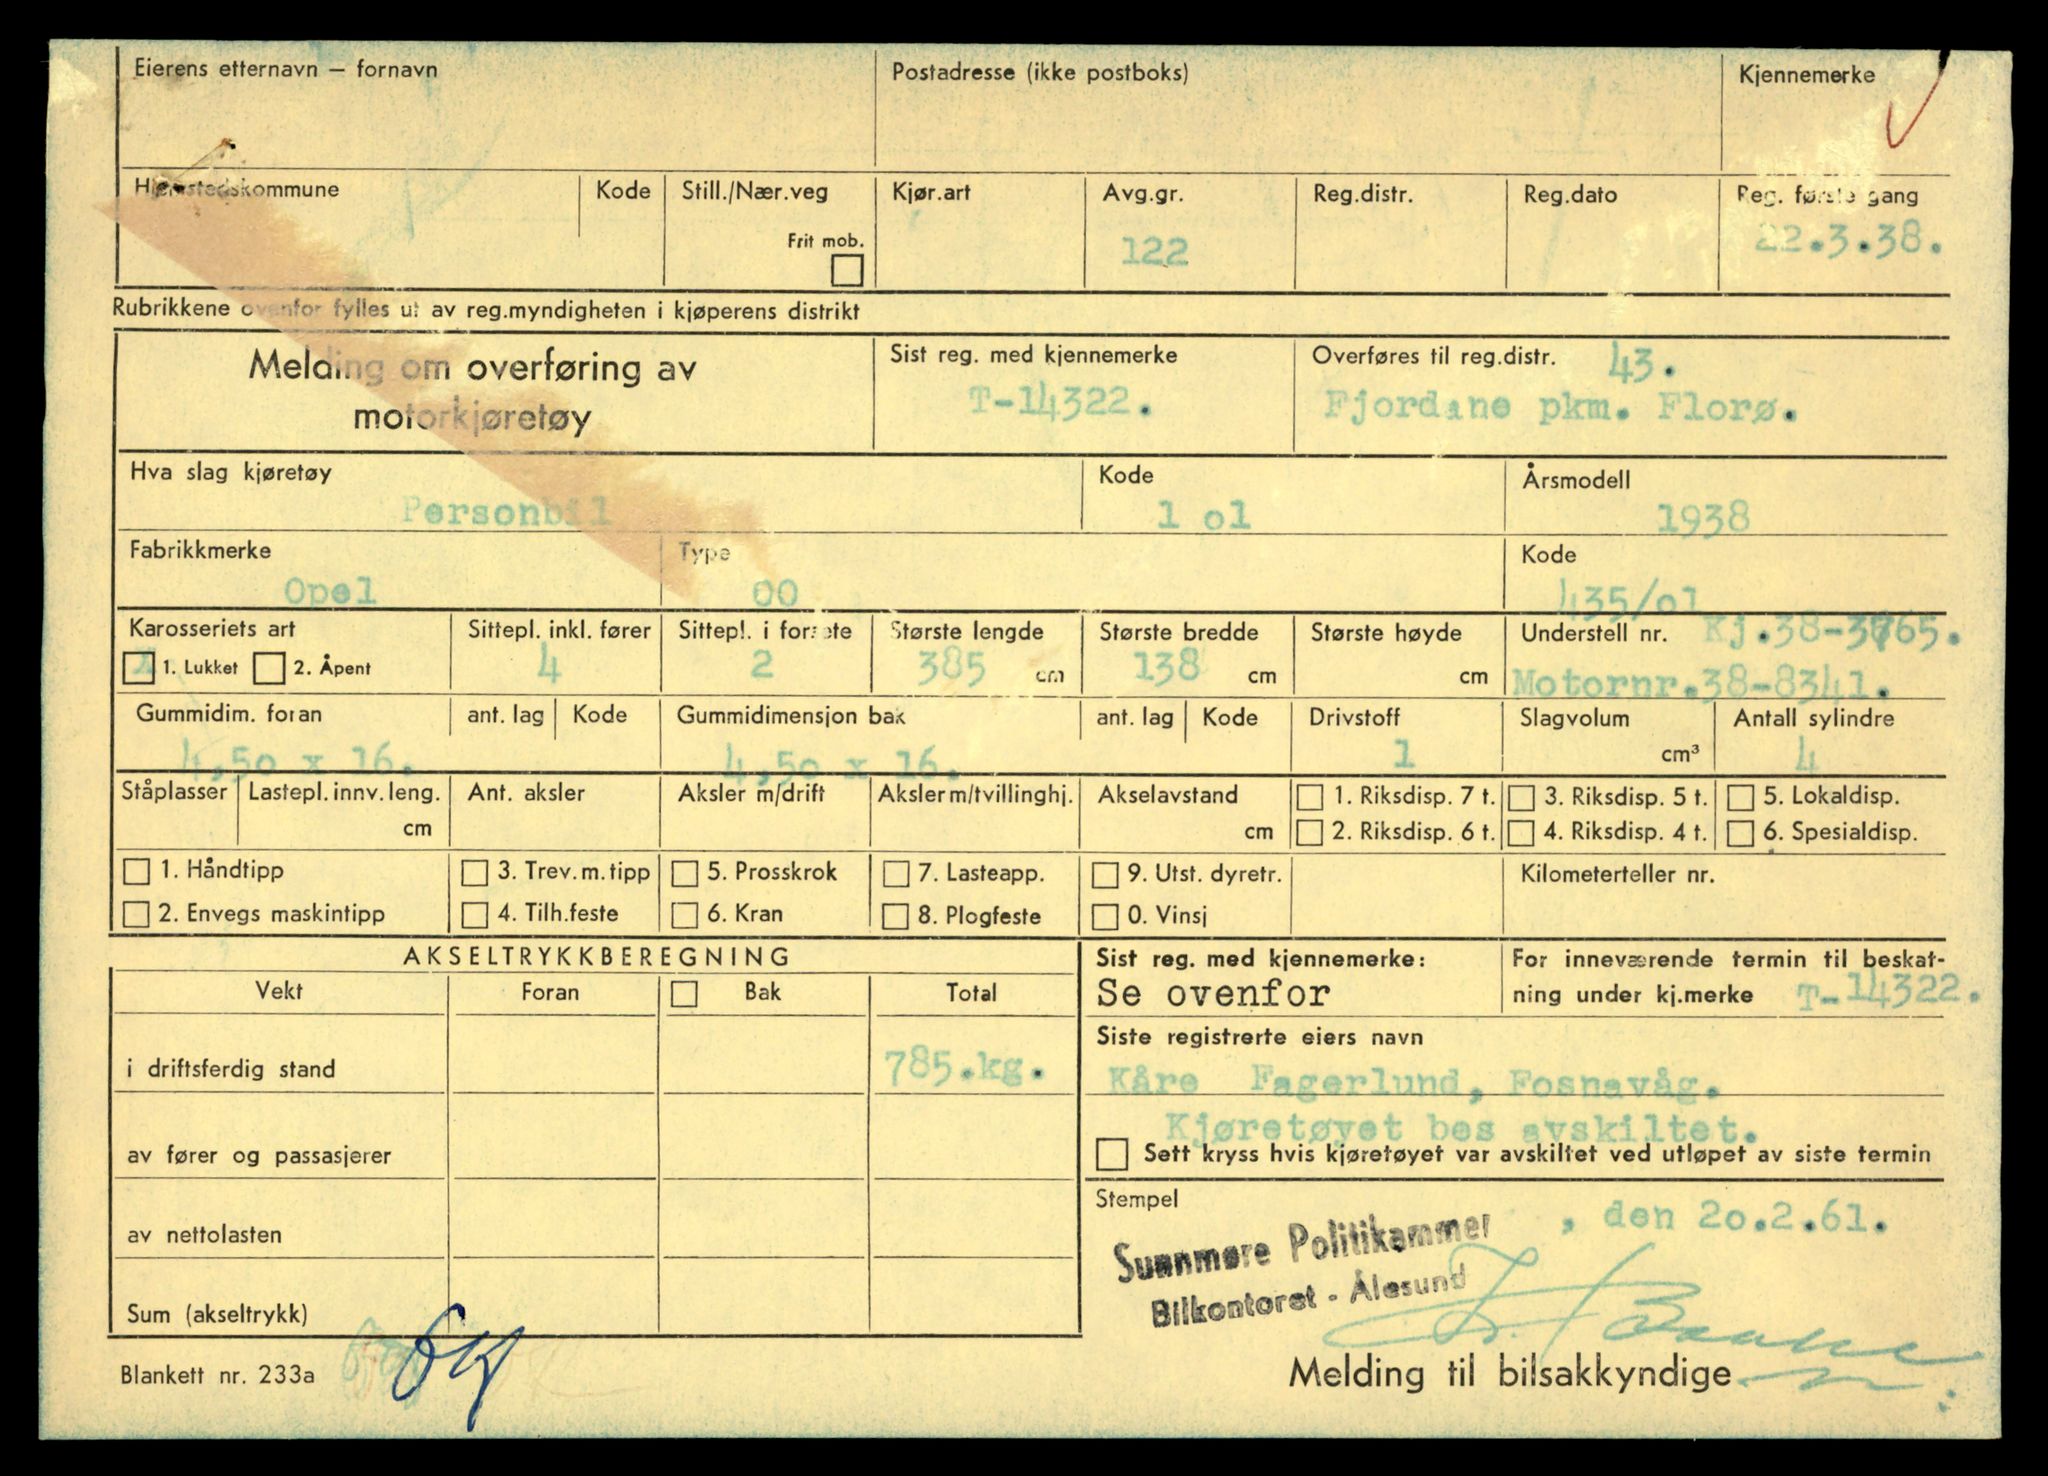 Eierens etternavn – fornavn
Postadresse (ikke postboks)
Kjennemerke
Hjemstedskommune
Kode
Still./Nær.veg
Frit mob.
Kjør.art
Avg.gr.
122
Reg.distr.
Reg.dato
Reg. første gang
22.3.38.
Rubrikkene ovenfor fylles ut av reg.myndigheten i kjøperens distrikt
Melding om overføring av
motorkjøretøy
Sist reg. med kjennemerke
T-14322.
Overføres til reg.distr. 43.
Fjordane pkm. Florø.
Hva slag kjøretøy
Personbil
Kode
1 o1
Årsmodell
1938
Fabrikkmerke
Opel
Type
OO
Kode
435/o1
Karosseriets art
1. Lukket 2. Åpent
Sittepl. inkl. fører
4
Sittepl. i forsete
2
Største lengde
385 cm
Største bredde
138 cm
Største høyde
cm
Understell nr. Kj.38-3765.
Motornr.38-8341.
Gummidim. foran
4,50 x 16.
ant. lag
Kode
Gummidimensjon bak
4,50 x 16.
ant. lag
Kode
Drivstoff
1
Slagvolum
cm³
Antall sylindre
4
Ståplasser
Lastepl. innv. leng.
cm
Ant. aksler
Aksler m/drift
Aksler m/tvillinghj.
Akselavstand
cm
1. Riksdisp. 7 t.
2. Riksdisp. 6 t.
3. Riksdisp. 5 t.
4. Riksdisp. 4 t.
5. Lokaldisp.
6. Spesialdisp.
1. Håndtipp
2. Envegs maskintipp
3. Trev. m. tipp
4. Tilh.feste
5. Prosskrok
6. Kran
7. Lasteapp.
8. Plogfeste
9. Utst. dyretr.
0. Vinsj
Kilometerteller nr.
AKSELTRYKKBEREGNING
Vekt
Foran
Bak
Total
i driftsferdig stand
785.kg.
av fører og passasjerer
av nettolasten
Sum (akseltrykk)
Sist reg. med kjennemerke:
Se ovenfor
For inneværende termin til beskat-
ning under kj.merke T-14322.
Siste registrerte eiers navn
Kåre Fagerlund, Fosnavåg.
Kjøretøyet bes avskiltet.
Sett kryss hvis kjøretøyet var avskiltet ved utløpet av siste termin
Stempel
, den 20.2.61.
Sunnmøre Politikammer
Bilkontoret - Ålesund
Blankett nr. 233a
Melding til bilsakkyndige